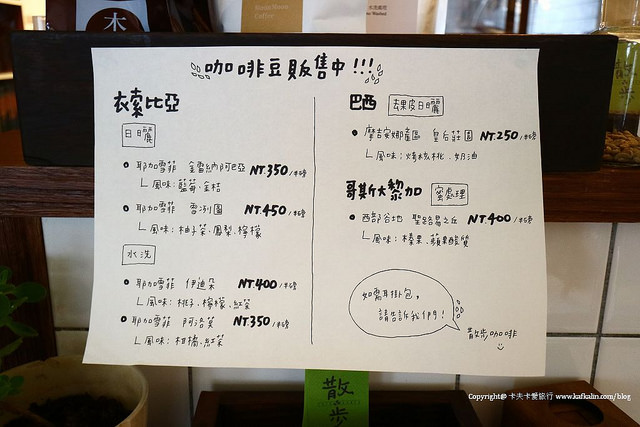 木
咖啡豆販售中!!!
衣索比亞
日曬
耶加雪菲 金雷納阿巴亞 NT.350/半磅
風味:藍莓.金桔
耶加雪菲 雪冽圖 NT.450/半磅
風味:柚子茶.鳳梨.檸檬
水洗
耶加雪菲 伊迪朵 NT.400/半磅
風味:桃子.檸檬.紅茶
耶加雪菲 阿洛莫 NT.350/半磅
風味:柑橘.紅茶
巴西
去果皮日曬
摩吉安娜產區 皇后莊園 NT.250/半磅
風味:烤核桃.奶油
哥斯大黎加
蜜處理
西部谷地 聖路易之丘 NT.400/半磅
風味:榛果.蘋果酸質
如需耳掛包,
請告訴我們!
散步咖啡
散步
Copyright@ 卡夫卡愛旅行 www.kafkalin.com/blog